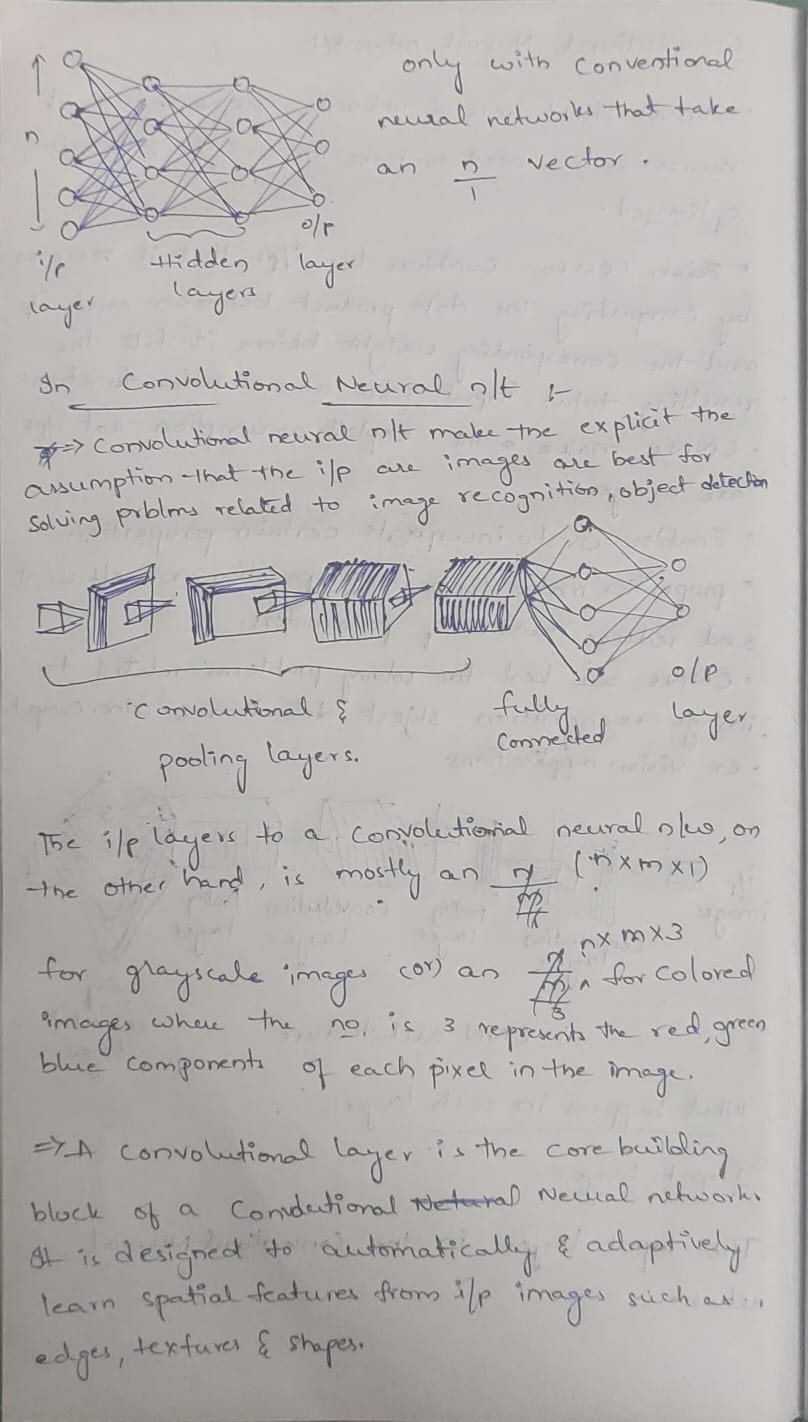 only with conventional
neural networks that take
an n/1 vector.
n
i/p
layer
Hidden
layers
o/p
layer
In Convolutional Neural n/t :-
=> Convolutional neural n/t make the explicit the
assumption that the i/p are images are best for
solving prblms related to image recognition, object detection
Convolutional &
pooling layers.
fully
connected
o/p
layer
The i/p layers to a convolutional neural n/w, on
the other hand, is mostly an (n x m x 1)
for grayscale images (or) an n x m x 3 for colored
images where the no. is 3 represents the red, green
blue components of each pixel in the image.
=> A convolutional layer is the core building
block of a Convolutional Netural Neural network.
It is designed to automatically & adaptively
learn spatial features from i/p images such as
edges, textures & shapes.